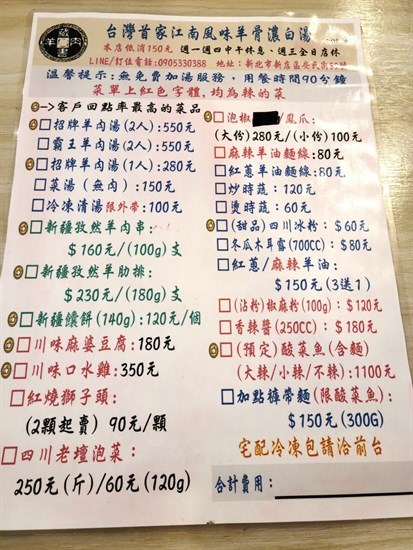 羊肉
台灣首家江南風味羊骨濃白湯
本店低消150元 週一週四中午休息、週三全日店休
LINE/訂位電話:0905330388 地址:新北市新店區安民街
溫馨提示:無免費加湯服務，用餐時間90分鐘
菜單上紅色字體,均為辣的菜
->客戶回點率最高的菜品
□招牌羊肉湯(2人):550元
□霸王羊肉湯(2人):550元
□招牌羊肉湯(1人):280元
□菜湯(無肉):150元
□冷凍清湯限外帶:100元
□新疆孜然羊肉串:
$160元/(100g)支
□新疆孜然羊肋排:
$230元/(180g)支
□新疆饢餅(140g):120元/個
□川味麻婆豆腐:180元
□川味口水雞:350元
□紅燒獅子頭:
(2顆起賣) 90元/顆
□四川老壇泡菜:
250元(斤)/60元(120g)
□泡椒 /鳳爪:
(大份)280元/(小份)100元
□麻辣羊油麵線:80元
□紅蔥羊油麵線:80元
□炒時蔬:120元
□燙時蔬:60元
□(甜品)四川冰粉:$60元
□冬瓜木耳露(700CC):$80元
□紅蔥/麻辣羊油:
$150元(3送1)
□(沾粉)椒麻粉(100g):$120元
□香辣醬(250CC):$180元
□(預定)酸菜魚(含麵)
(大辣/小辣/不辣):1100元
□加點褲帶麵(限酸菜魚):
$150元(300G)
宅配冷凍包請洽前台
合計費用: